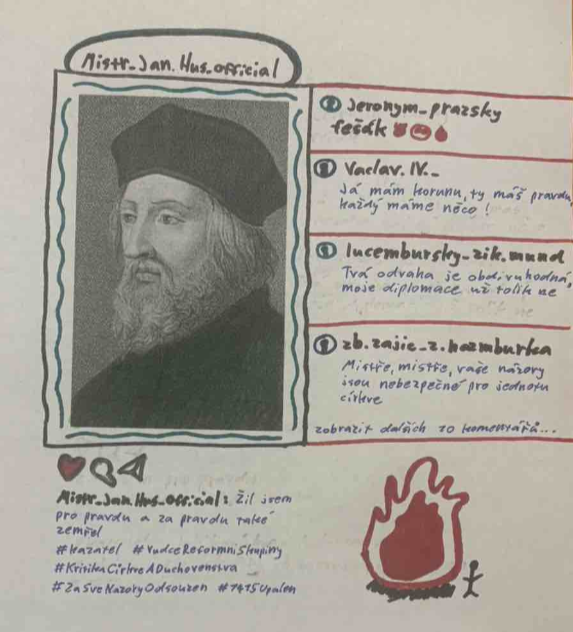 Mistr_Jan.Hus_official
Jeronym_prazsky
fešák
Vaclav.IV._
Já mám korunu, ty máš pravdu,
každý máme něco!
lucembursky_zik.mund
Tvá odvaha je obdivuhodná,
moje diplomace už tolik ne
zb.zajic_z.hazmburka
Mistře, mistře, vaše názory
jsou nebezpečné pro jednotu
církve
zobrazit dalších 10 komentářů...
Mistr_Jan.Hus_official: Žil jsem
pro pravdu a za pravdu také
zemřel
#kazatel #VudceReformniSkupiny
#KritikaCirkveADuchovenstva
#ZaSveNazoryOdsouzen #1415Upalen